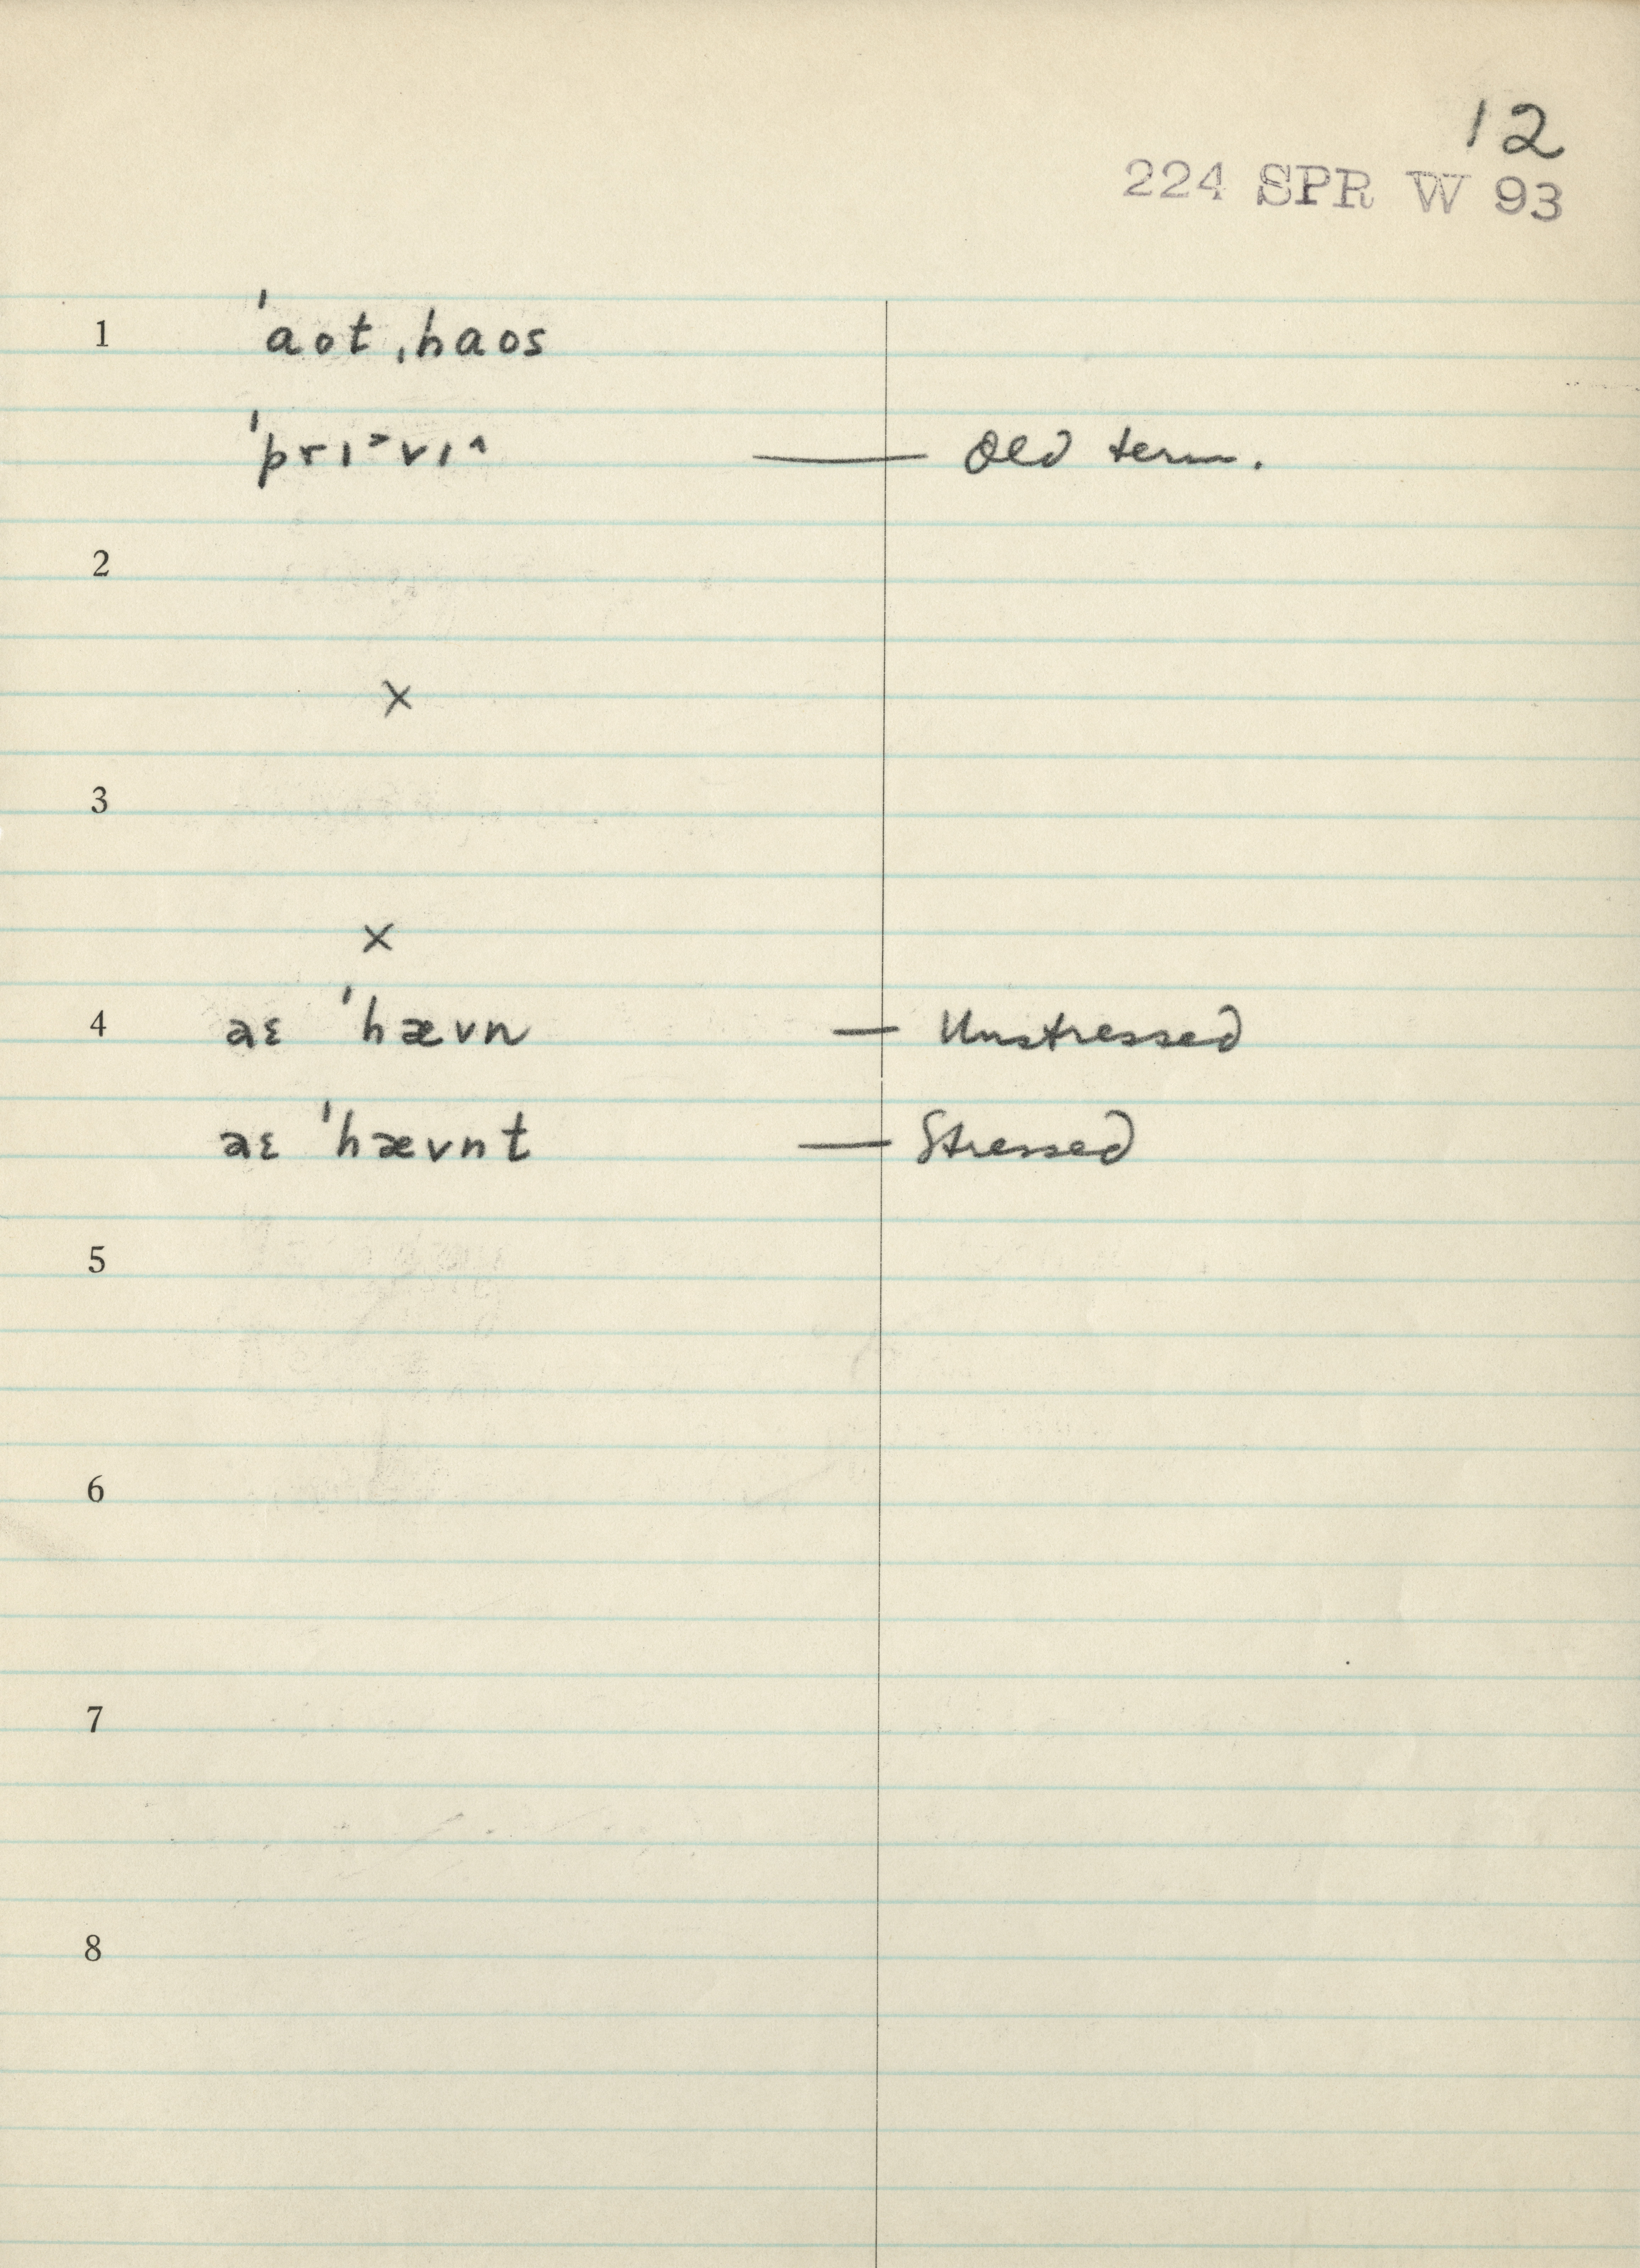 12
224 SPR W 93
1 ˈaot ˌhaos
ˈprɪ˃vɪ^ — Old term.
2
×
3
×
4 aɛ ˈhævn — Unstressed
aɛ ˈhævnt — Stressed
5
6
7
8